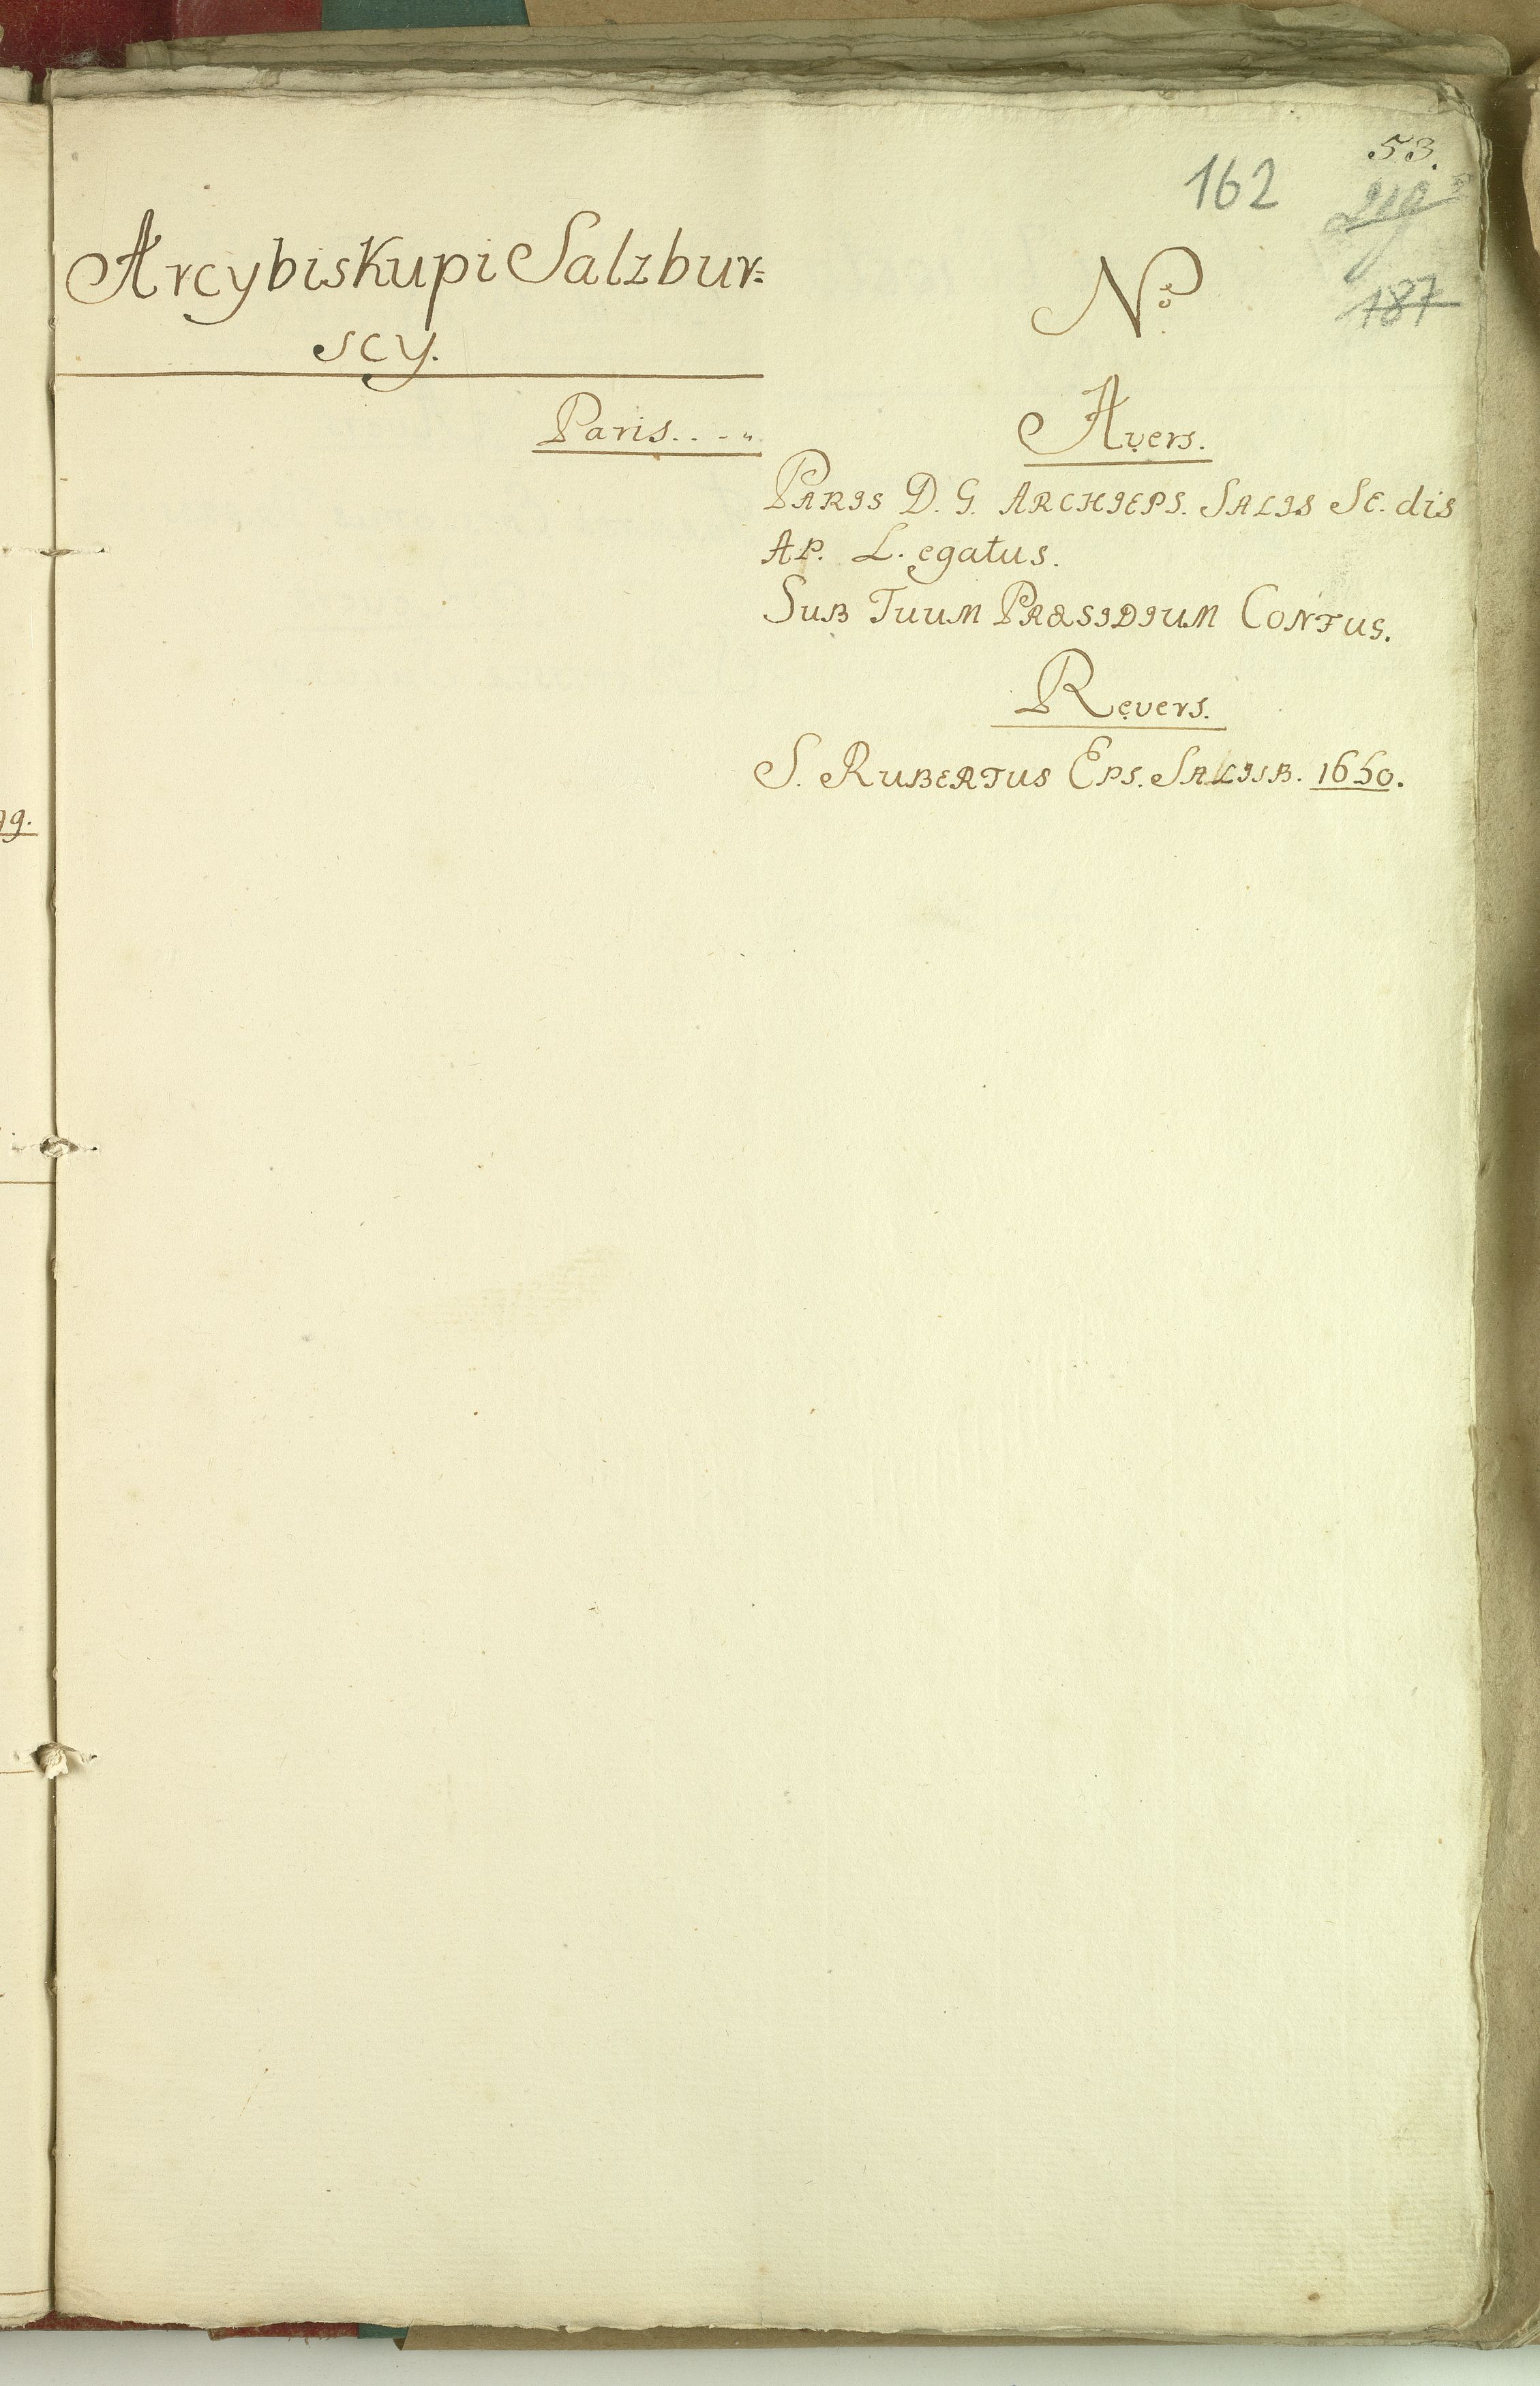 53.
162
187
Arcybiskupi Salzbur=
scy.
No
Paris....
Avers.
PARIS D. G. ARCHIEPS. SALIS SE. dis
AP. L. egatus.
SUB TUUM PRÆSIDIUM CONFUG.
Revers.
S. RUBERTUS EPS. SALISB. 1650.